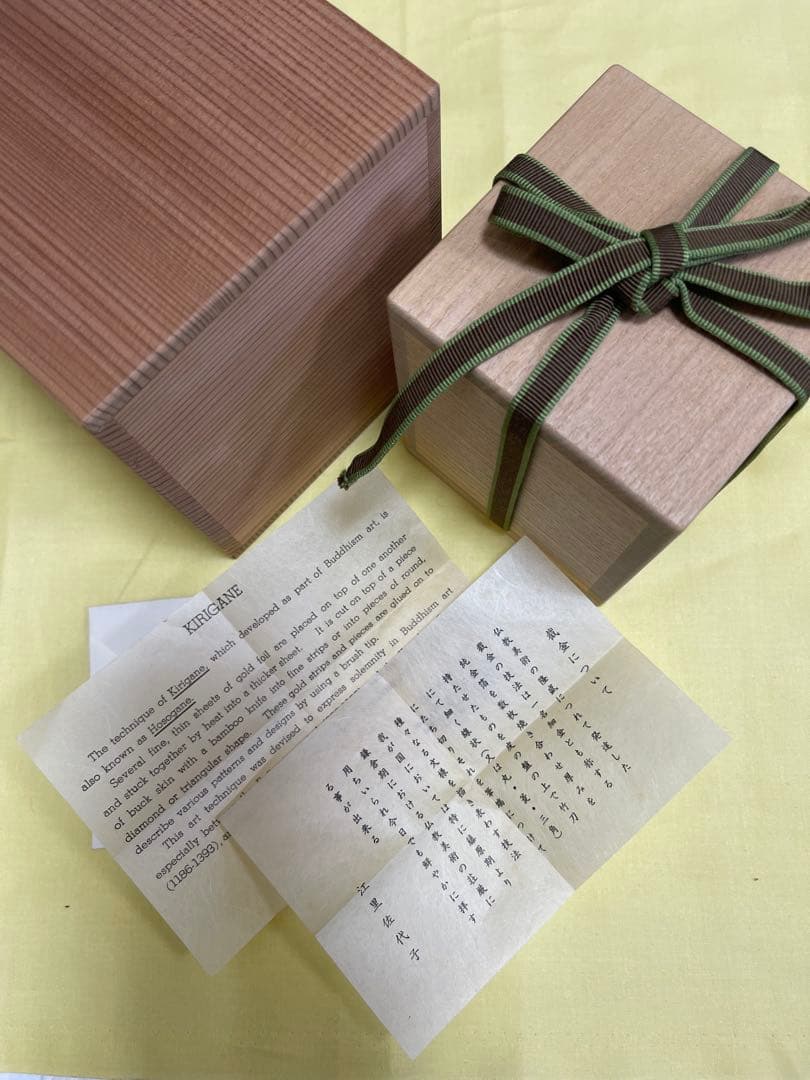 KIRIGANE
The technique of Kirigane, which developed as part of Buddhism art, is
also known as Hosogane.
Several fine, thin sheets of gold foil are placed on top of one another
and stuck together by heat into a thicker sheet. It is cut on top of a piece
of buck skin with a bamboo knife into fine strips or into pieces of round,
diamond or triangular shape. These gold strips and pieces are glued on to
describe various patterns and designs by using a brush tip.
This art technique was devised to express solemnity in Buddhism art
especially bet
(1186-1393), a
截金について
仏教美術の隆盛につれて発達した
截金の技法は一名細金とも称する
純金箔を数枚焼き合わせ厚みを
持たせたものを皮の盤の上で竹刀
にて細く線状(又は丸・菱・三角)
にたち切り につけて
種々なる文様を表わす技法
我が国においては特に藤原期より
鎌倉期における仏教美術の荘厳に
用いられ今日でも鮮やかに拝す
る事が出来る
江里佐代子